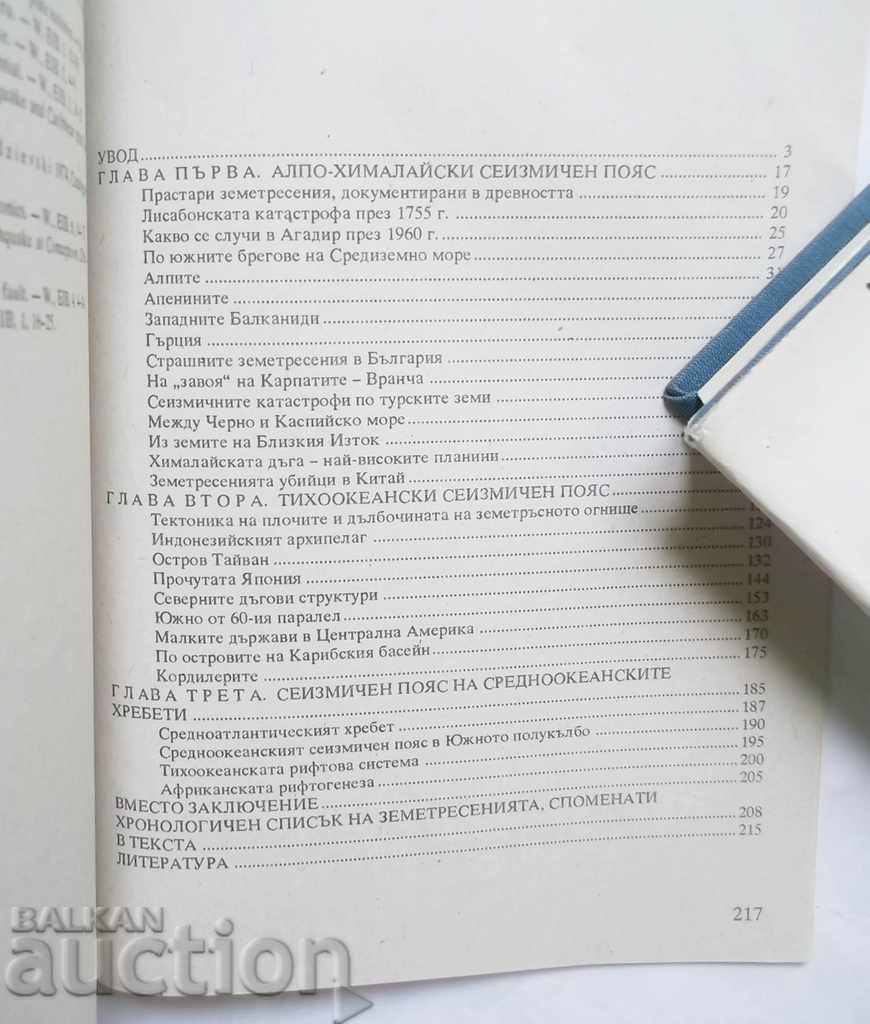 fault. – W., EIB 4–6
IIB, 1, 16-25.
УВОД 3
ГЛАВА ПЪРВА. АЛПО-ХИМАЛАЙСКИ СЕИЗМИЧЕН ПОЯС 17
Прастари земетресения, документирани в древността 19
Лисабонската катастрофа през 1755 г. 20
Какво се случи в Агадир през 1960 г. 25
По южните брегове на Средиземно море 27
Алпите 31
Апенините
Западните Балканиди
Гърция
Страшните земетресения в България
На „завоя“ на Карпатите – Вранча
Сеизмичните катастрофи по турските земи
Между Черно и Каспийско море
Из земите на Близкия Изток
Хималайската дъга – най-високите планини
Земетресенията убийци в Китай
ГЛАВА ВТОРА. ТИХООКЕАНСКИ СЕИЗМИЧЕН ПОЯС
Тектоника на плочите и дълбочината на земетръсното огнище
Индонезийският архипелаг 124
Остров Тайван 130
Прочутата Япония 132
Северните дъгови структури 144
Южно от 60-ия паралел 153
Малките държави в Централна Америка 163
По островите на Карибския басейн 170
Кордилерите 175
ГЛАВА ТРЕТА. СЕИЗМИЧЕН ПОЯС НА СРЕДНООКЕАНСКИТЕ
ХРЕБЕТИ 185
Средноатлантическият хребет 187
Средноокеанският сеизмичен пояс в Южното полукълбо 190
Тихоокеанската рифтова система 195
Африканската рифтогенеза 200
ВМЕСТО ЗАКЛЮЧЕНИЕ 205
ХРОНОЛОГИЧЕН СПИСЪК НА ЗЕМЕТРЕСЕНИЯТА, СПОМЕНАТИ
В ТЕКСТА 208
ЛИТЕРАТУРА 215
217
BALKAN
auction